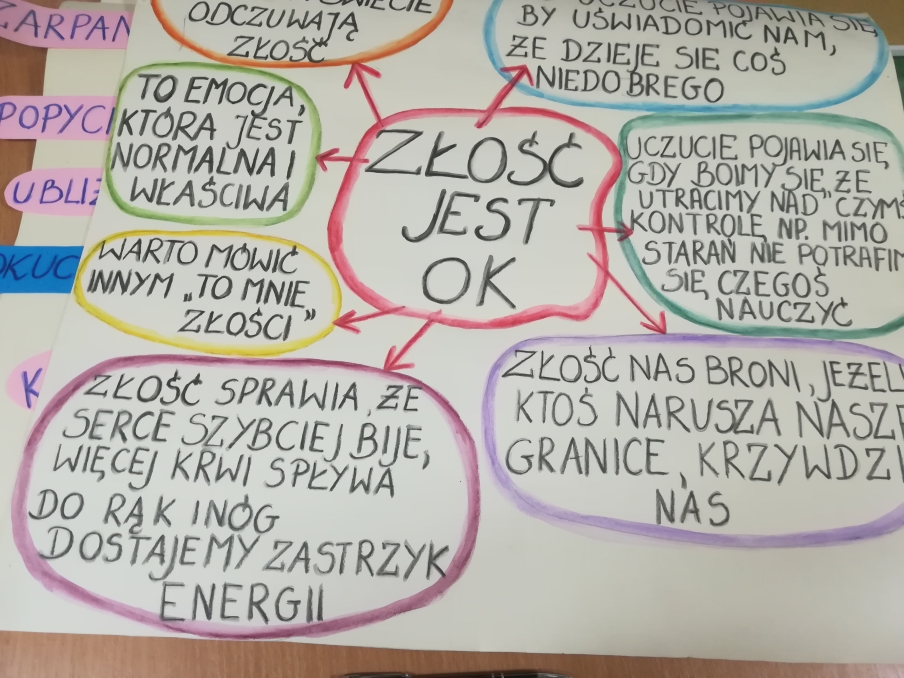 ODCZUWAJĄ
ZŁOŚĆ
UCZUCIE POJAWIA SIĘ
BY UŚWIADOMIĆ NAM,
ŻE DZIEJE SIĘ COŚ
NIEDOBREGO
TO EMOCJA,
KTÓRA JEST
NORMALNA I
WŁAŚCIWA
ZŁOŚĆ
JEST
OK
UCZUCIE POJAWIA SIĘ,
GDY BOIMY SIĘ, ŻE
UTRACIMY NAD CZYMŚ
KONTROLĘ NP. MIMO
STARAŃ NIE POTRAFIM
SIĘ CZEGOŚ
NAUCZYĆ
WARTO MÓWIĆ
INNYM „TO MNIE
ZŁOŚCI"
ZŁOŚĆ SPRAWIA, ŻE
SERCE SZYBCIEJ BIJE,
WIĘCEJ KRWI SPŁYWA
DO RĄK I NÓG
DOSTAJEMY ZASTRZYK
ENERGII
ZŁOŚĆ NAS BRONI, JEŻEL
KTOŚ NARUSZA NASZE
GRANICE, KRZYWDZI
NAS
ZARPAN
POPYC
UBLIŻ
OKUC
K